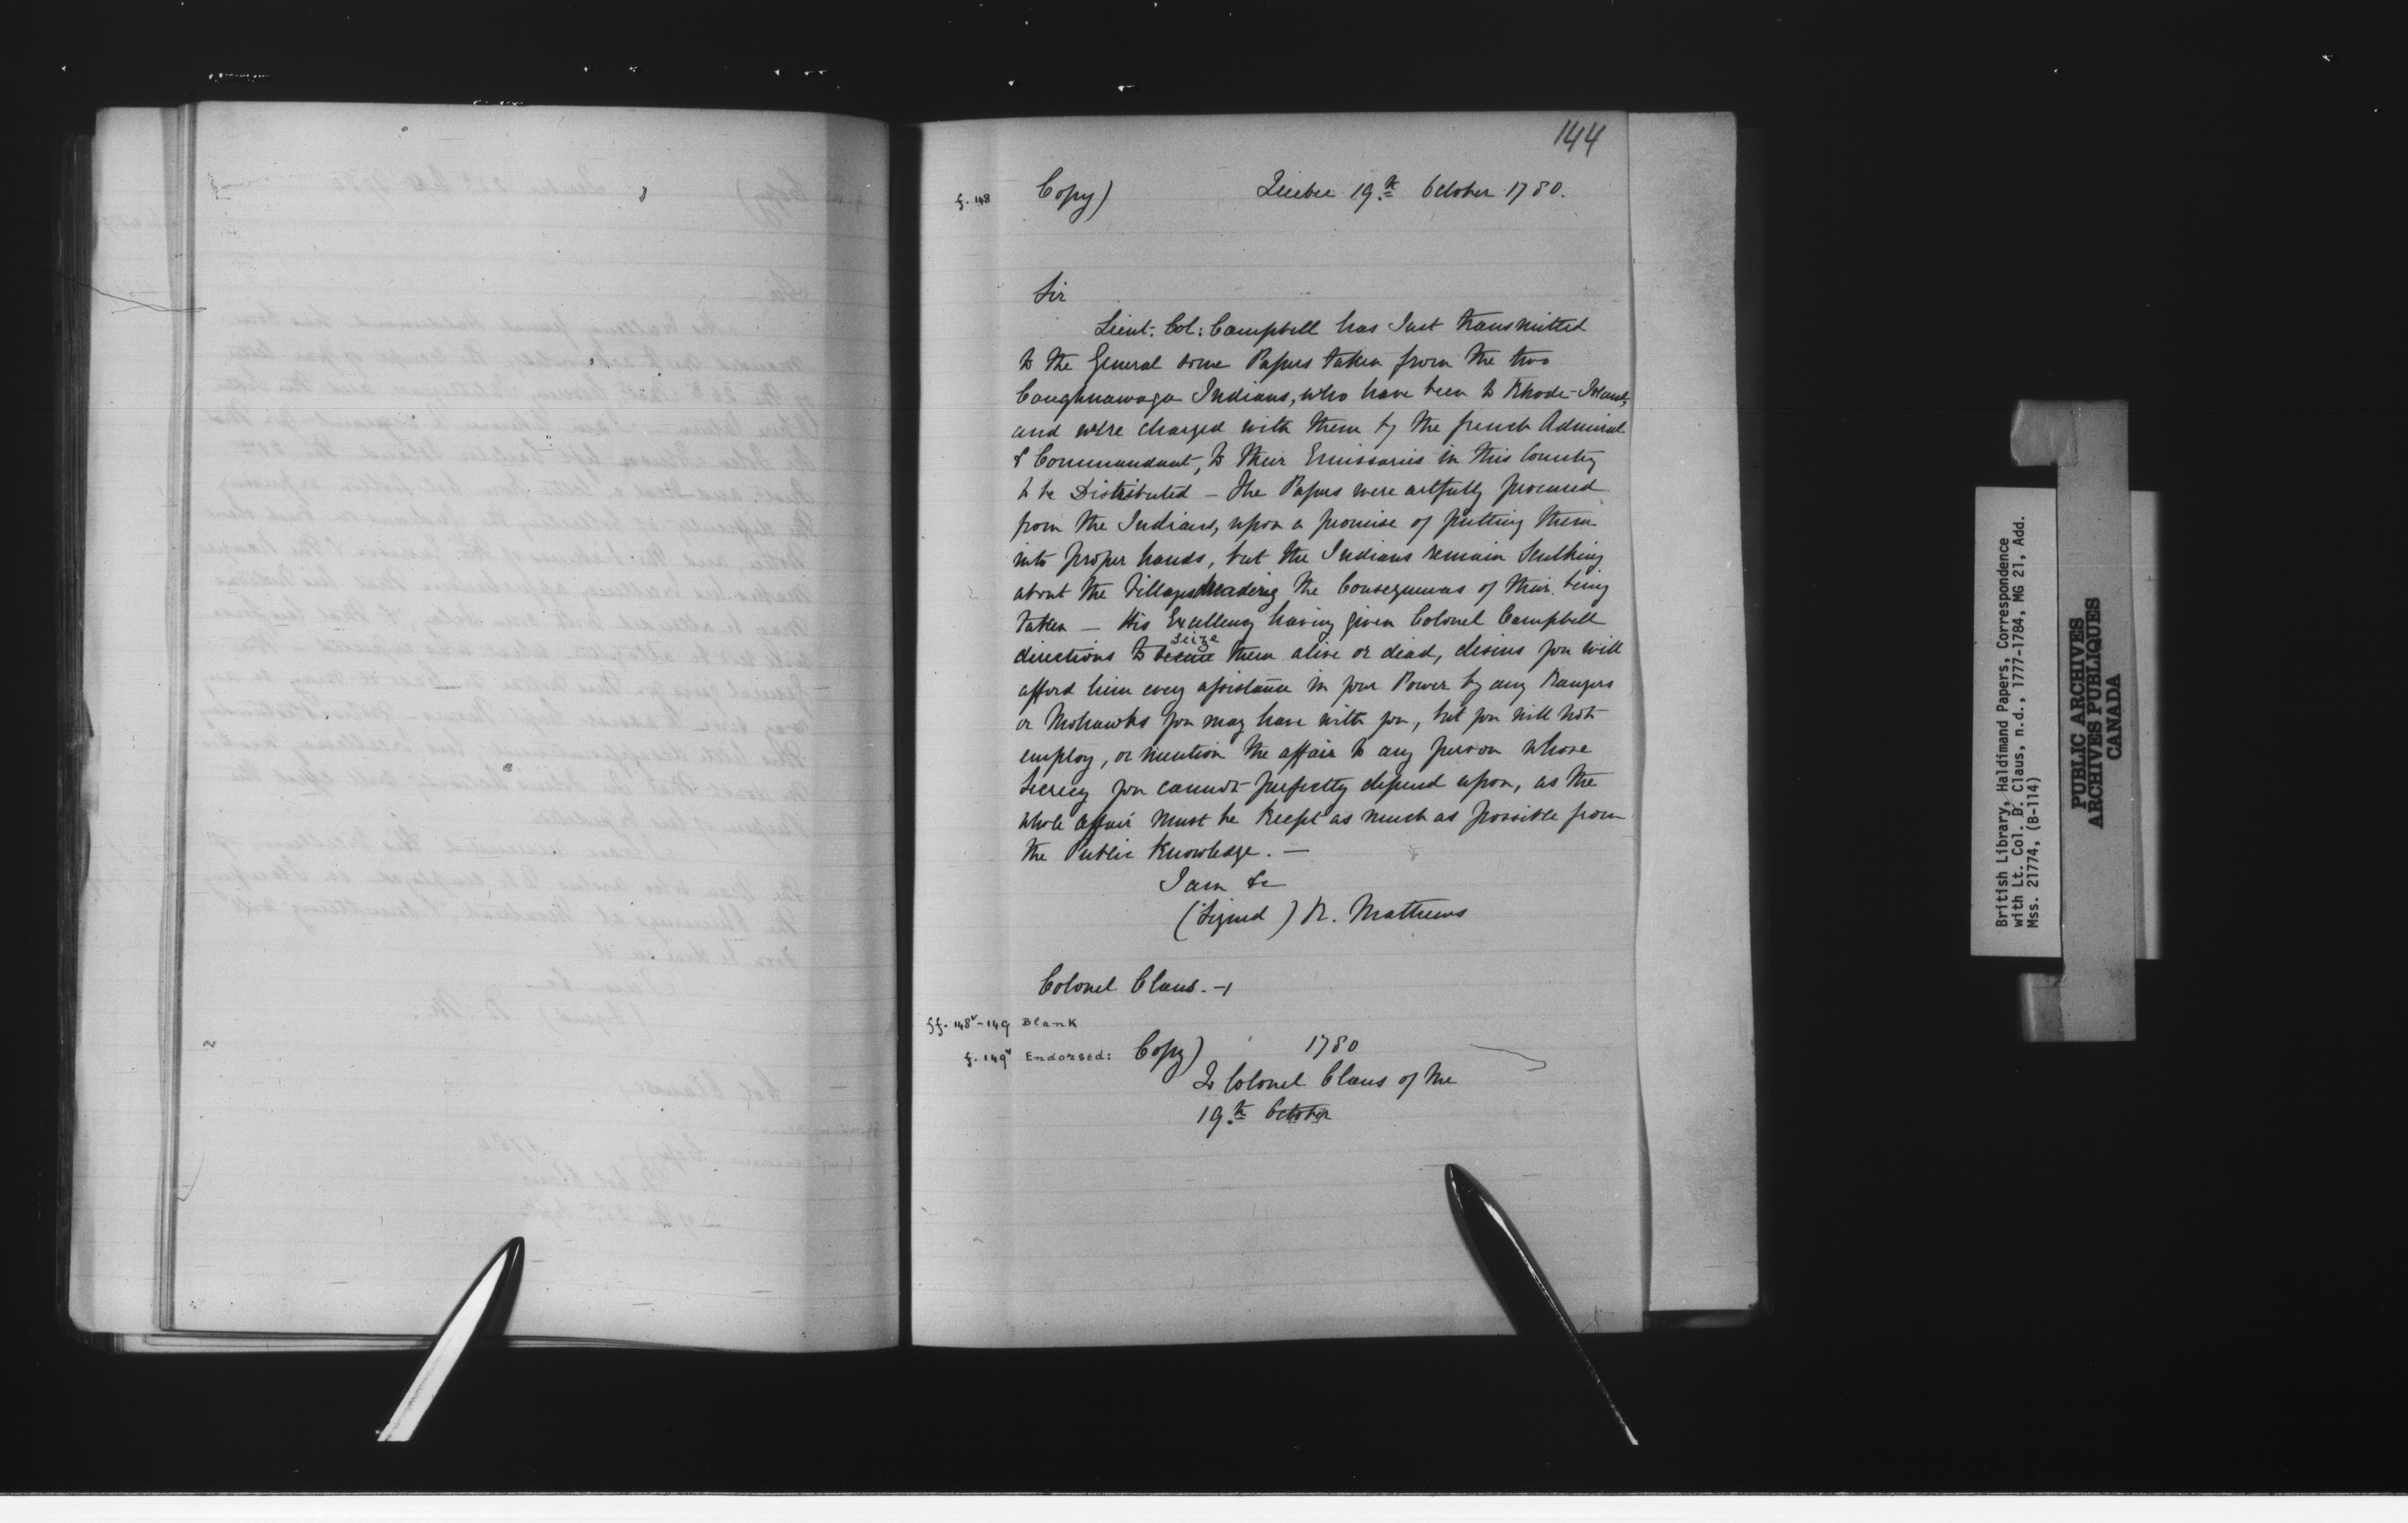 144
f. 148 Copy) Quebec 19.th October 1780.
Sir
Lieut: Col: Campbell has Just transmitted
to the General some Papers taken from the two
Caughnawaga Indians, who have been to Rhode-Island,
and were charged with them by the french Admiral
& Commandant, to their Emissaries in this Country
to be Distributed — The Papers were artfully procured
from the Indians, upon a promise of putting them
into proper hands, but the Indians remain Sculking
about the Village dreading the Consequences of their being
taken — His Excellency having given Colonel Campbell
seize
directions to secure them alive or dead, desires you will
afford him every assistance in your Power by any Rangers
or Mohawks you may have with you, but you will not
employ, or mention the affair to any person whose
Secrecy you cannot perfectly depend upon, as the
whole affair must be Keept as much as possible from
the Public Knowledge. —
I am &c
(Signed) R. Mathews
Colonel Claus. —
ff. 148v-149 Blank
f. 149v Endorsed: Copy) 1780
To Colonel Claus of the
19.th October
British Library, Haldimand Papers, Correspondence
with Lt. Col. D. Claus, n.d., 1777-1784, MG 21, Add.
Mss. 21774, (B-114)
PUBLIC ARCHIVES
ARCHIVES PUBLIQUES
CANADA